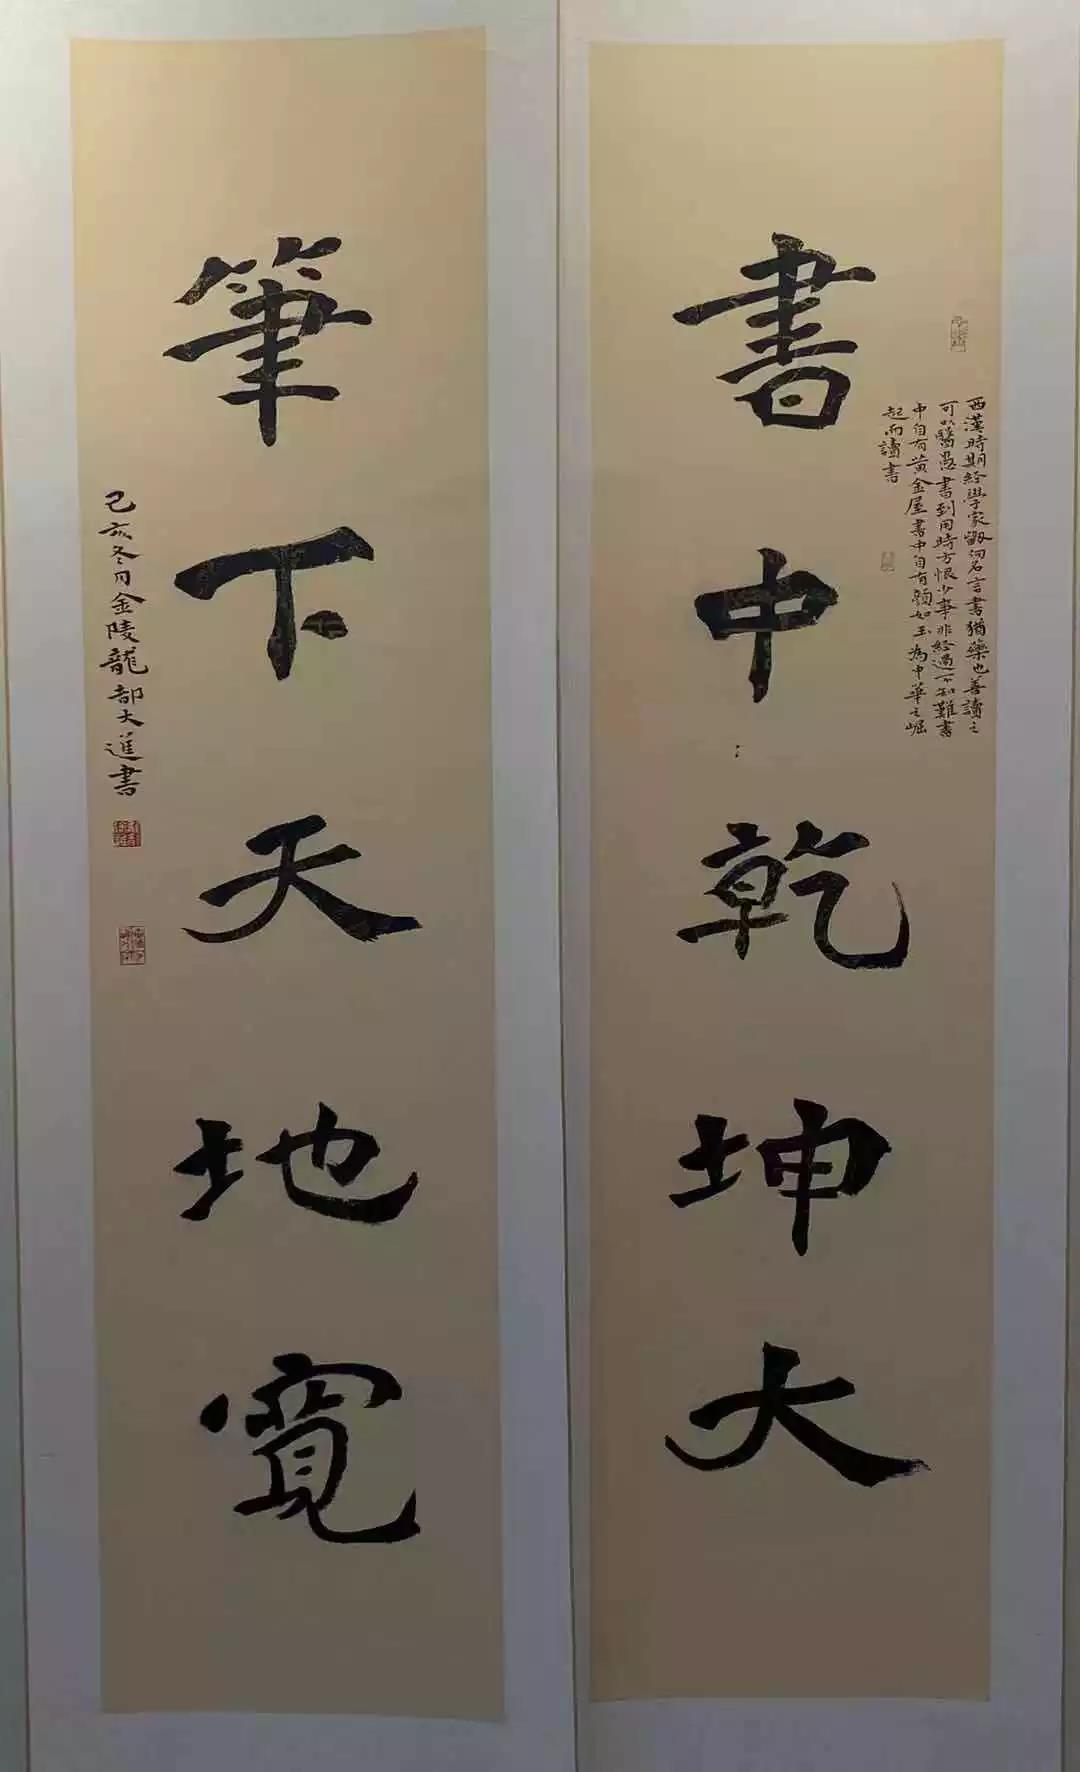 書中乾坤大
西漢時期經學家劉向名言書猶藥也善讀之
可以醫愚書到用時方恨少事非經過不知難書
中自有黃金屋書中自有顏如玉為中華之崛
起而讀書
筆下天地寬
己亥冬月金陵龍部大進書